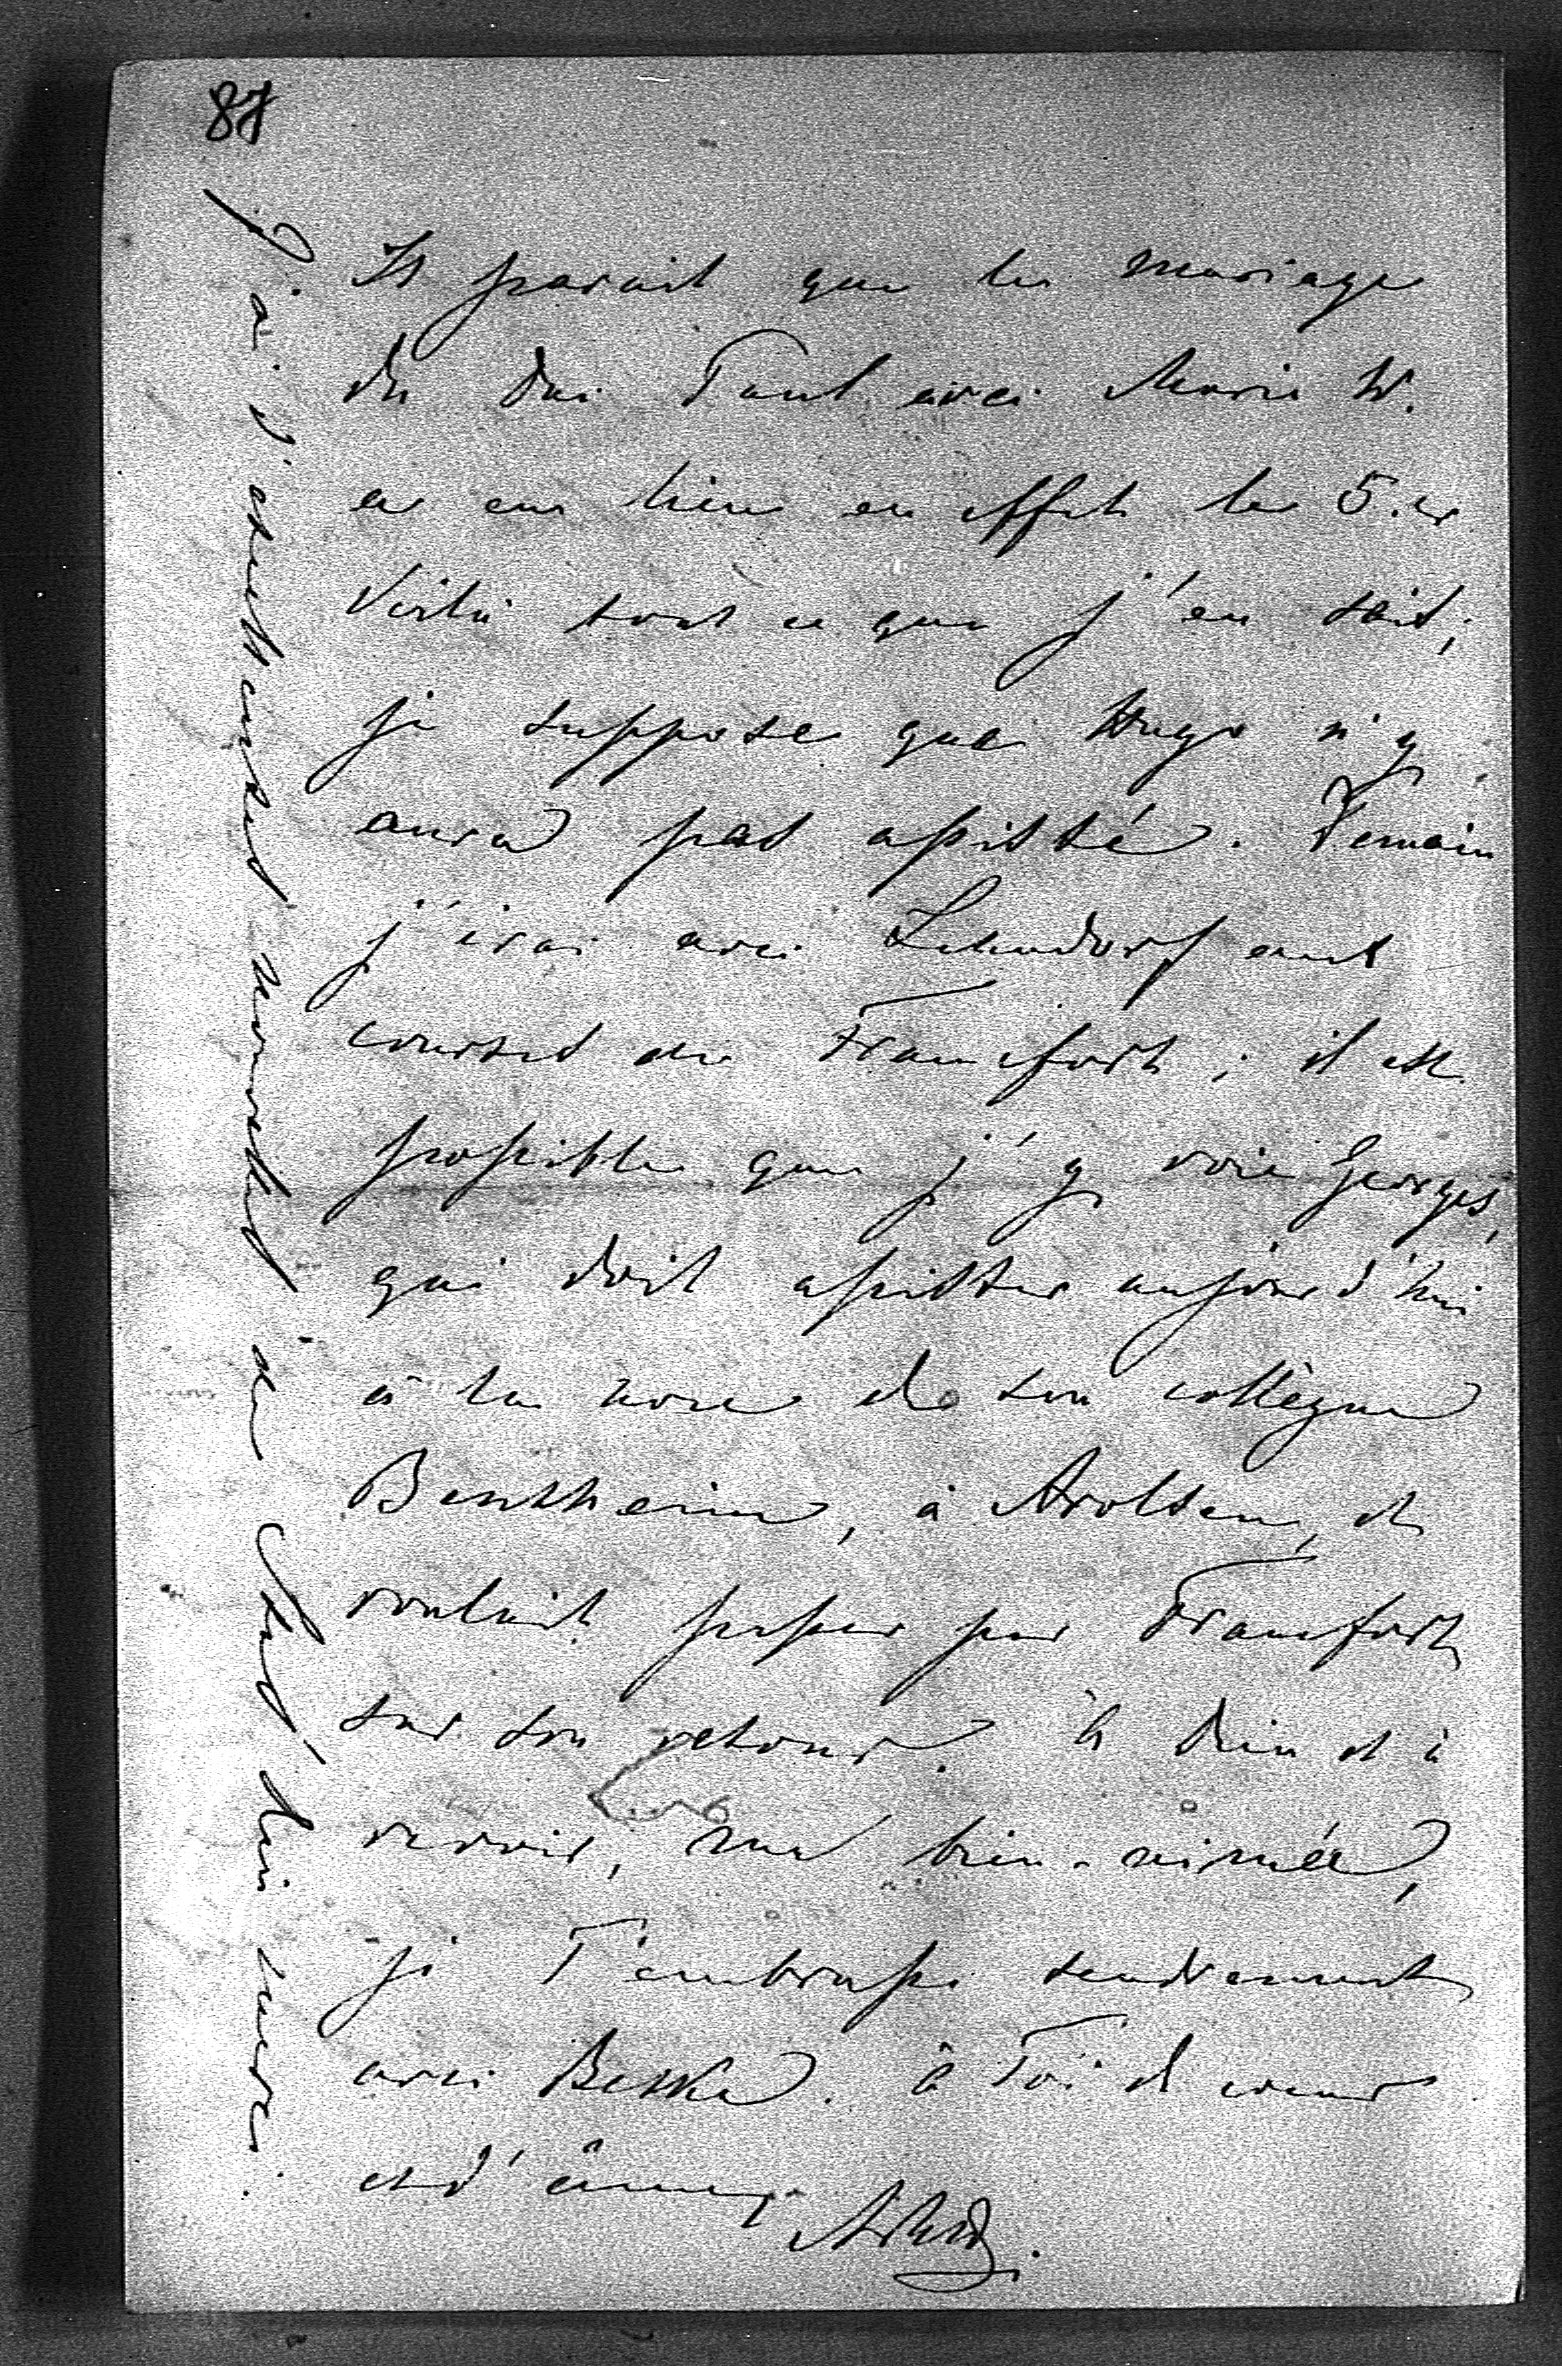 87
Il parait que le mariage
du duc Paul avec Marie W.
a eu lieu en effet le 5. et
voilà tout ce que j'en sais;
je suppose que Hugo n'y
aura pas assisté. Demain
j'irai avec Lehndorf aux
courses de Francfort; il est
possible que j'y voie Georges,
qui doit assister aujourd'hui
à la noce de son collègue
Bentheim, à Arolsen, et
voulait passer par Francfort
sur son retour. à Dieu et à
revoir, ma bien-aimée,
je T'embrasse tendrement
avec Bekka. à Toi de coeur
et d'âme,
J'ai d'excellentes nouvelles de